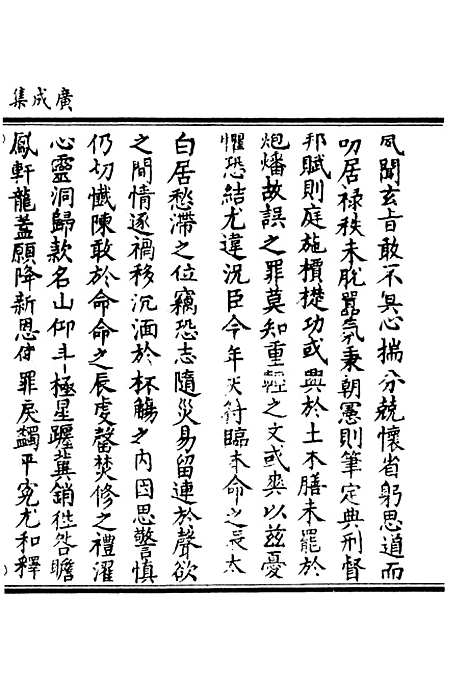 廣成集
夙聞玄旨敢不具心揣分兢懷省躬思道而
叨居祿秩未脫囂氛秉朝憲則筆定典刑督
邦賦則庭施檟楚功或興於土木膳未罷於
炮燔故誤之罪莫知重輕之文或爽以茲憂
懼恐結尤違況臣今年天符臨本命之辰太
白居愁滯之位竊恐志隨災易留連於聲欲
之間情逐禍移沉湎於杯觴之內因思警慎
仍切懺陳敢於命命之辰虔罄焚修之禮濯
心靈洞歸款名山仰斗極星躔冀銷往咎瞻
鳳軒龍蓋願降新恩付罪戾蠲平冤尤和釋